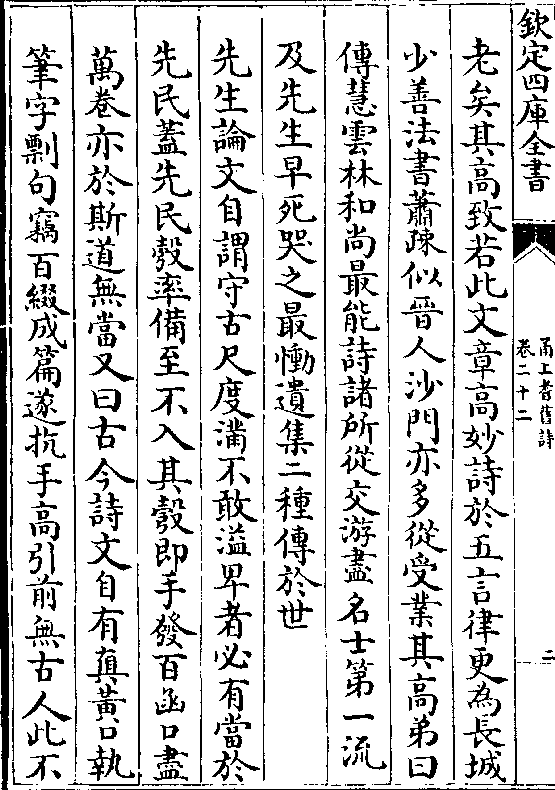 欽定四庫全書
甬上耆舊詩
卷二十二
二
老矣其高致若此文章高妙詩於五言律更為長城
少善法書蕭疎似晉人沙門亦多從受業其高弟曰
傳慧雲林和尚最能詩諸所從交游盡名士第一流
及先生早死哭之最慟遺集二種傳於世
先生論文自謂守古尺度滿不敢溢卑者必有當於
先民蓋先民彀率備至不入其彀即手發百函口盡
萬卷亦於斯道無當又曰古今詩文自有真黃口執
筆字剽句竊百綴成篇遂抗手高引前無古人此不